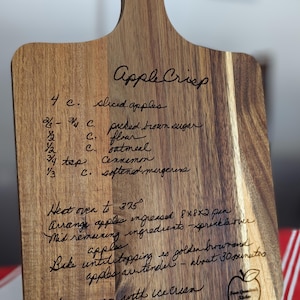 Apple Crisp
4 c. sliced apples
2/3 - 3/4 c. packed brown sugar
1/2 c. flour
1/2 c. oatmeal
3/4 tsp cennimon
1/3 c. softened margerine
Heat oven to 375°
Arrange apples in greased 8x8x2 pan
Mid remaining ingredient - sprinkle over
apples
Bake until topping is golden brown and
apples are tender - about 30 minutes
with ice cream